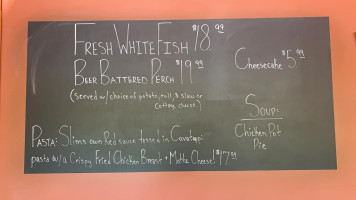 FRESH WHITE FISH $18.99
BEER BATTERED PERCH $19.99
(Served w/choice of potato, roll, & slaw or
Cottage cheese)
Cheesecake $5.99
SOUP:
Chicken Pot
Pie
PASTA: Slims own Red sauce tossed in
pasta w/a Crispy Fried Chicken Breast + Cheese! $17.99